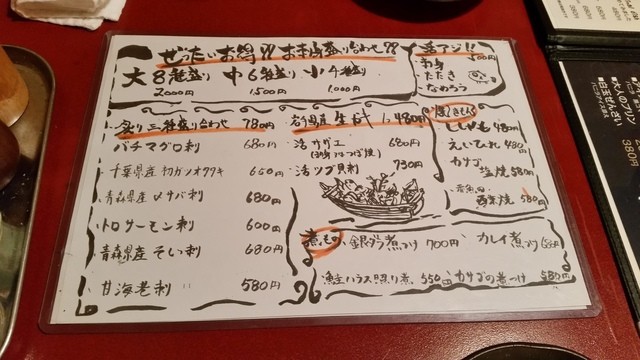 ぜったいお得!! お刺身盛り合わせ!!
大8種盛り 中6種盛り 小4種盛り
2000円 1500円 1000円
生アジ!!
500円
・お身
・たたき
・なめろう
炙り三種盛り合わせ 780円
バチマグロ刺 680円
千葉県産 初ガツオタタキ 650円
青森県産 〆サバ刺 680円
トロサーモン刺 600円
青森県産 そい刺 680円
甘海老刺 580円
岩手県産 生ガキ 1ヶ 480円
活サザエ 680円
活ツブ貝刺 730円
焼きもの
ししゃも 480円
えいひれ 480円
カサゴ
塩焼 580円
西京焼 580円
煮もの
銀ダラ煮つけ 700円
カレイ煮つけ
鮭ハラス照り煮 550円
カサゴの煮つけ 580円